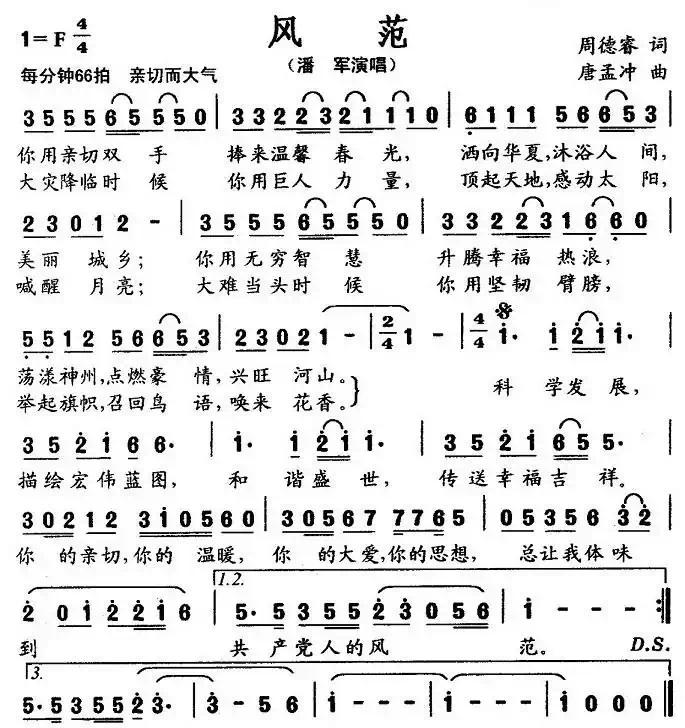 风 范
1=F 4/4
(潘 军演唱)
周德睿 词
每分钟66拍 亲切而大气
唐孟冲 曲
3 5 5 5 6 5 5 5 0 | 3 3 2 2 3 2 1 1 1 0 | 6 1 1 1 5 6 6 5 3 |
你用亲切双 手 捧来温馨 春 光, 洒向华夏,沐浴人 间,
大灾降临时 候 你用巨人 力 量, 顶起天地,感动太 阳,
2 3 0 1 2 - | 3 5 5 5 6 5 5 5 0 | 3 3 2 2 3 1 6 6 0 |
美丽 城乡; 你用无穷智 慧 升腾幸福 热浪,
喊醒 月亮; 大难当头时 候 你用坚韧 臂膀,
5 5 1 2 5 6 6 5 3 | 2 3 0 2 1 - | 2/4 1 - | 4/4 1· 1 2 1 1·
荡漾神州,点燃豪 情,兴旺 河山。
科 学发 展,
举起旗帜,召回鸟 语,唤来 花香。
3 5 2 1 6 6· | 1· 1 2 1 1· | 3 5 2 1 6 5 5· |
描绘宏伟蓝图, 和 谐盛 世, 传送幸福吉 祥。
3 0 2 1 2 3 1 0 5 6 0 | 3 0 5 6 7 7 7 6 5 | 0 5 3 5 6 3 2 |
你 的亲切,你的 温暖, 你 的大爱,你的思想, 总让我体味
1.2.
2 0 1 2 2 1 6 | 5· 5 3 5 5 2 3 0 5 6 | 1 - - - :||
到 共 产党人的风 范。 D.S.
3.
5· 5 3 5 5 2 3· | 3 - 5 6 | 1 - - - | 1 - - - | 1 0 0 0 ||